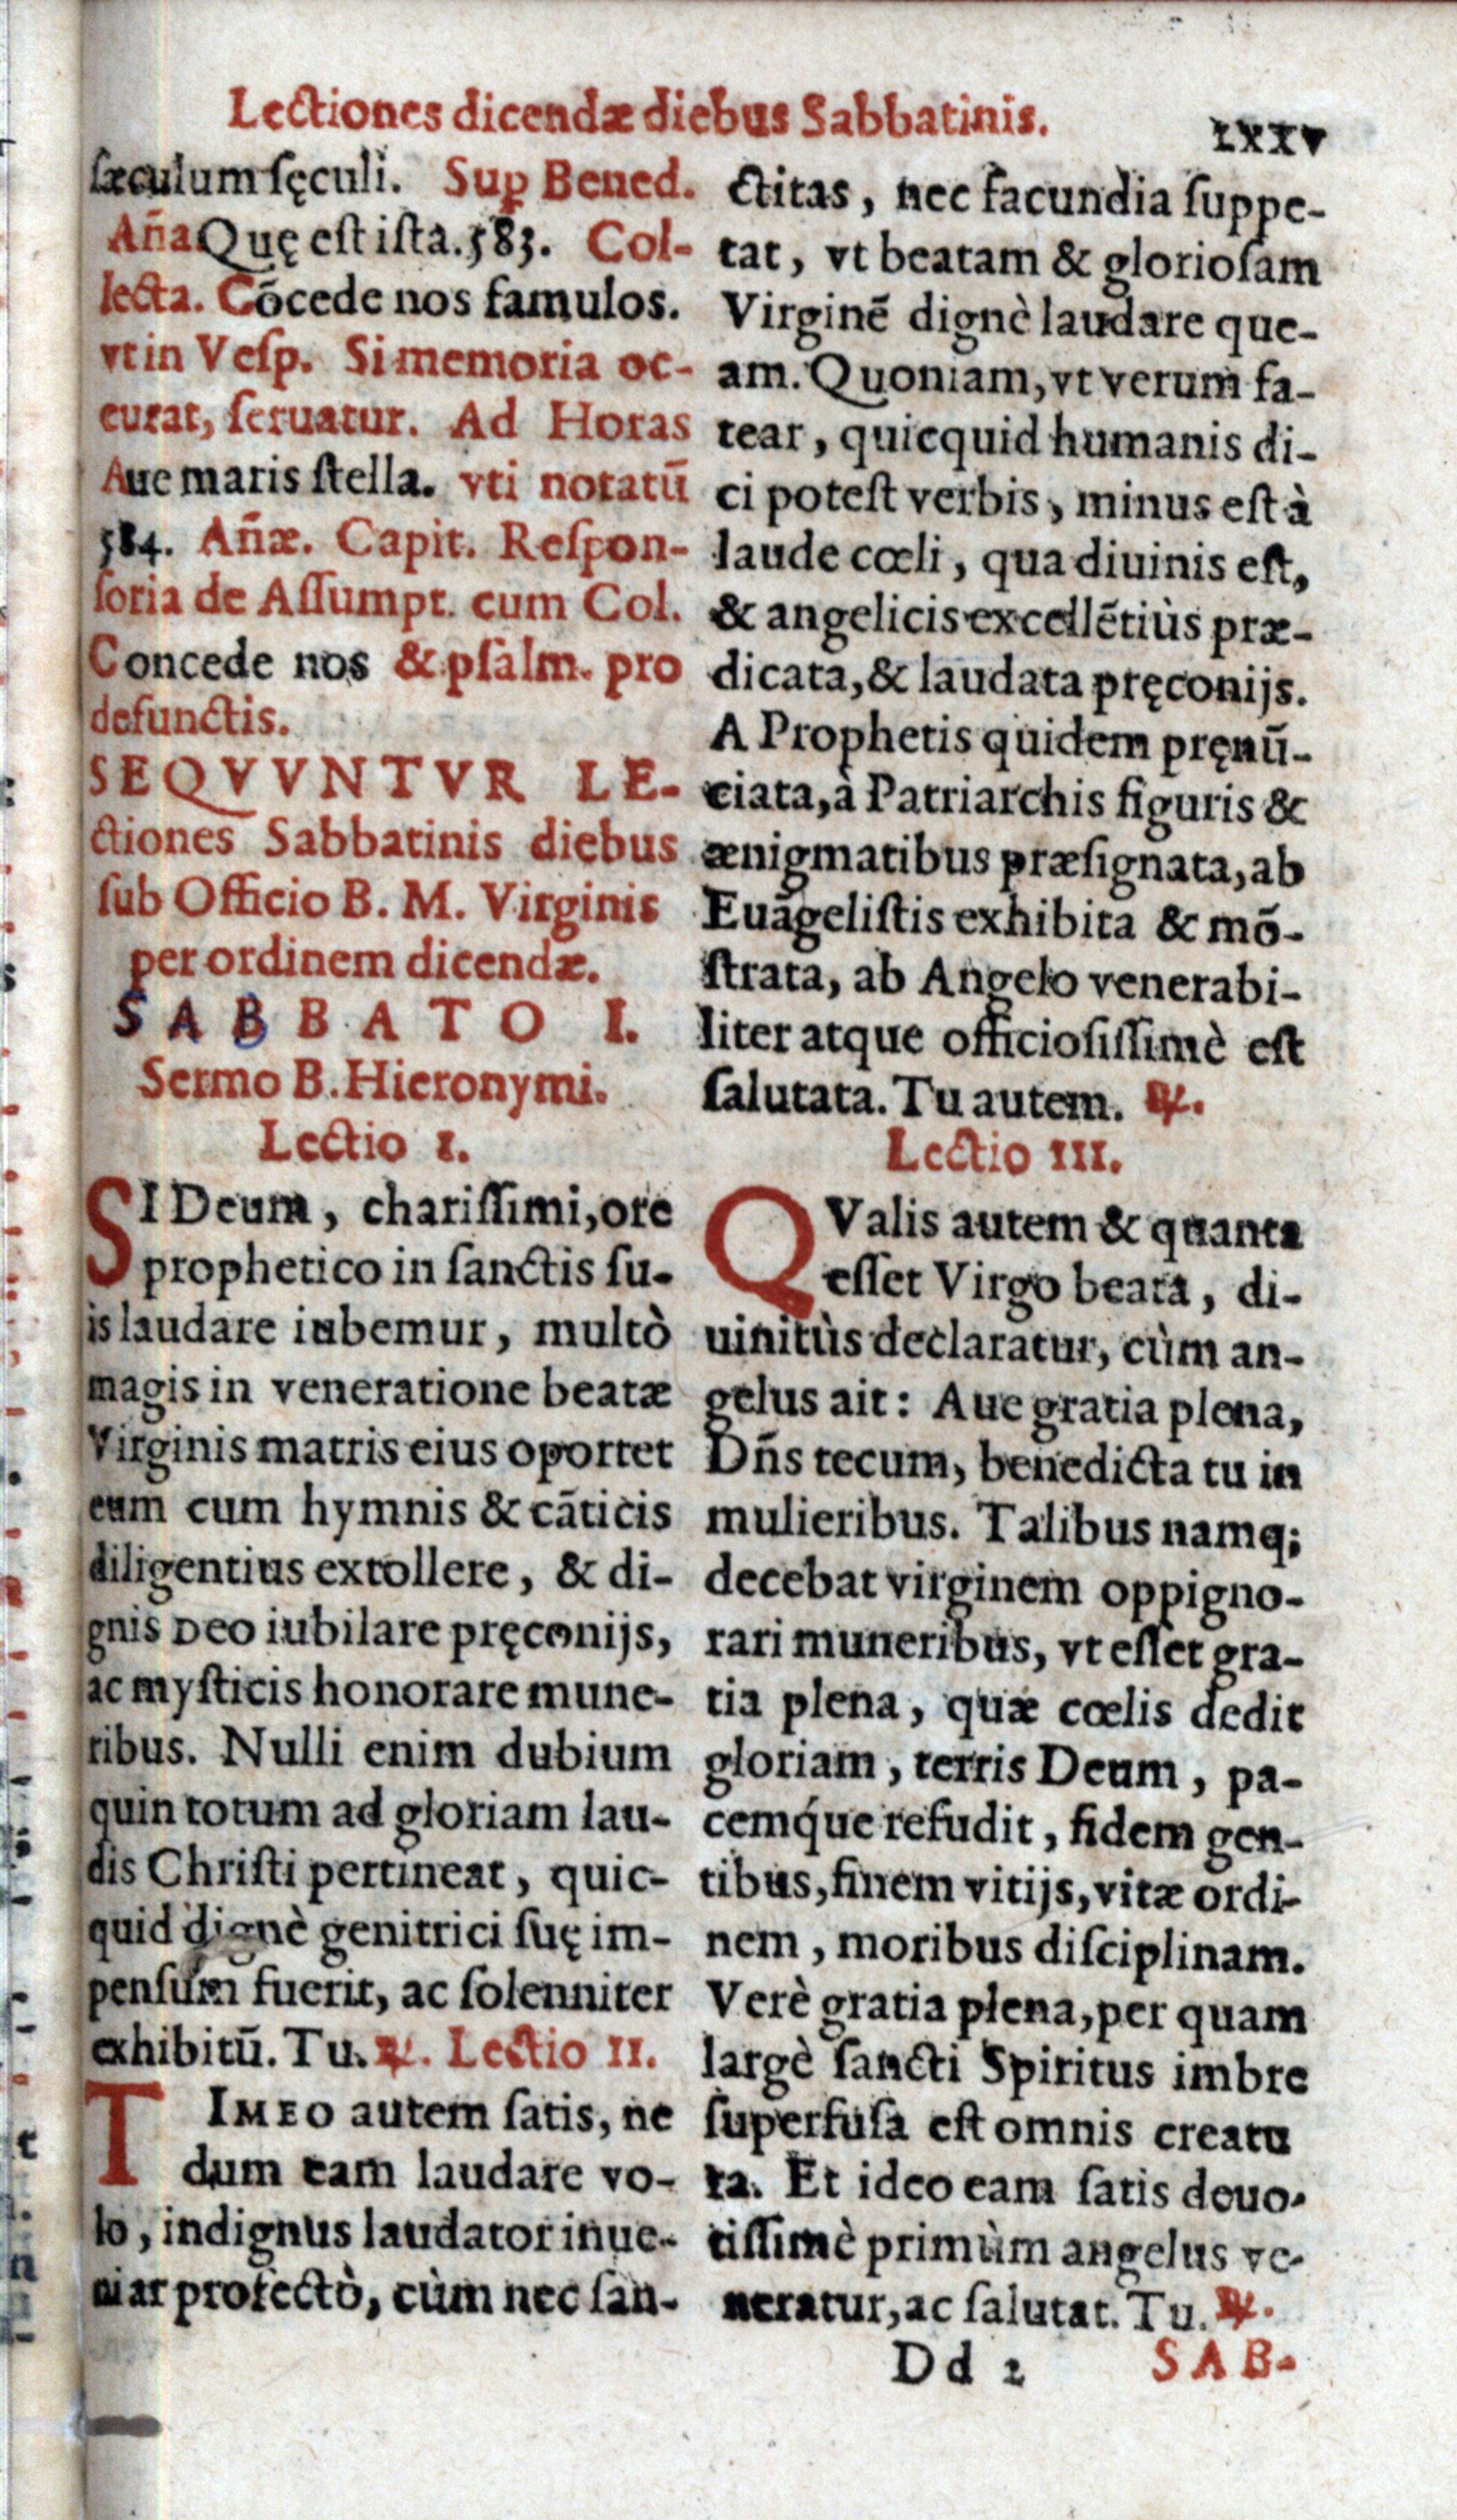 Lectiones dicendæ diebus Sabbatinis.
LXXV
sæculum sęculi. Sup Bened.
Añа Quę est ista. 583. Col-
lecta. Cōcede nos famulos.
vt in Vesp. Si memoria oc-
curat, seruatur. Ad Horas
Aue maris stella. vti notatū
584. Añæ. Capit. Respon-
soria de Assumpt. cum Col.
Concede nos & psalm. pro
defunctis.
SEQVVNTVR LE-
ctiones Sabbatinis diebus
sub Officio B. M. Virginis
per ordinem dicendæ.
SABBATO I.
Sermo B. Hieronymi.
Lectio I.
SI Deum, charissimi, ore
prophetico in sanctis su-
is laudare iubemur, multò
magis in veneratione beatæ
Virginis matris eius oportet
eum cum hymnis & cāticis
diligentius extollere, & di-
gnis DEO iubilare pręconijs,
ac mysticis honorare mune-
ribus. Nulli enim dubium
quin totum ad gloriam lau-
dis Christi pertineat, quic-
quid dignè genitrici suę im-
pensum fuerit, ac solenniter
exhibitū. Tu. ℟. Lectio II.
TIMEO autem satis, ne
dum eam laudare vo-
lo, indignus laudator inue-
niar profectò, cùm nec san-
ctitas, nec facundia suppe-
tat, vt beatam & gloriosam
Virginē dignè laudare que-
am. Quoniam, vt verum fa-
tear, quicquid humanis di-
ci potest verbis, minus est à
laude cœli, qua diuinis est,
& angelicis excellētiùs præ-
dicata, & laudata pręconijs.
A Prophetis quidem pręnū-
ciata, à Patriarchis figuris &
ænigmatibus præsignata, ab
Euāgelistis exhibita & mō-
strata, ab Angelo venerabi-
liter atque officiosissimè est
salutata. Tu autem. ℟.
Lectio III.
QValis autem & quanta
esset Virgo beata, di-
uinitùs declaratur, cùm an-
gelus ait: Aue gratia plena,
Dñs tecum, benedicta tu in
mulieribus. Talibus namq;
decebat virginem oppigno-
rari muneribus, vt esset gra-
tia plena, quæ cœlis dedit
gloriam, terris Deum, pa-
cemq́ue refudit, fidem gen-
tibus, finem vitijs, vitæ ordi-
nem, moribus disciplinam.
Verè gratia plena, per quam
largè sancti Spiritus imbre
superfusa est omnis creatu
ra. Et ideo eam satis deuo-
tissimè primùm angelus ve-
neratur, ac salutat. Tu. ℟.
Dd 2 SAB-